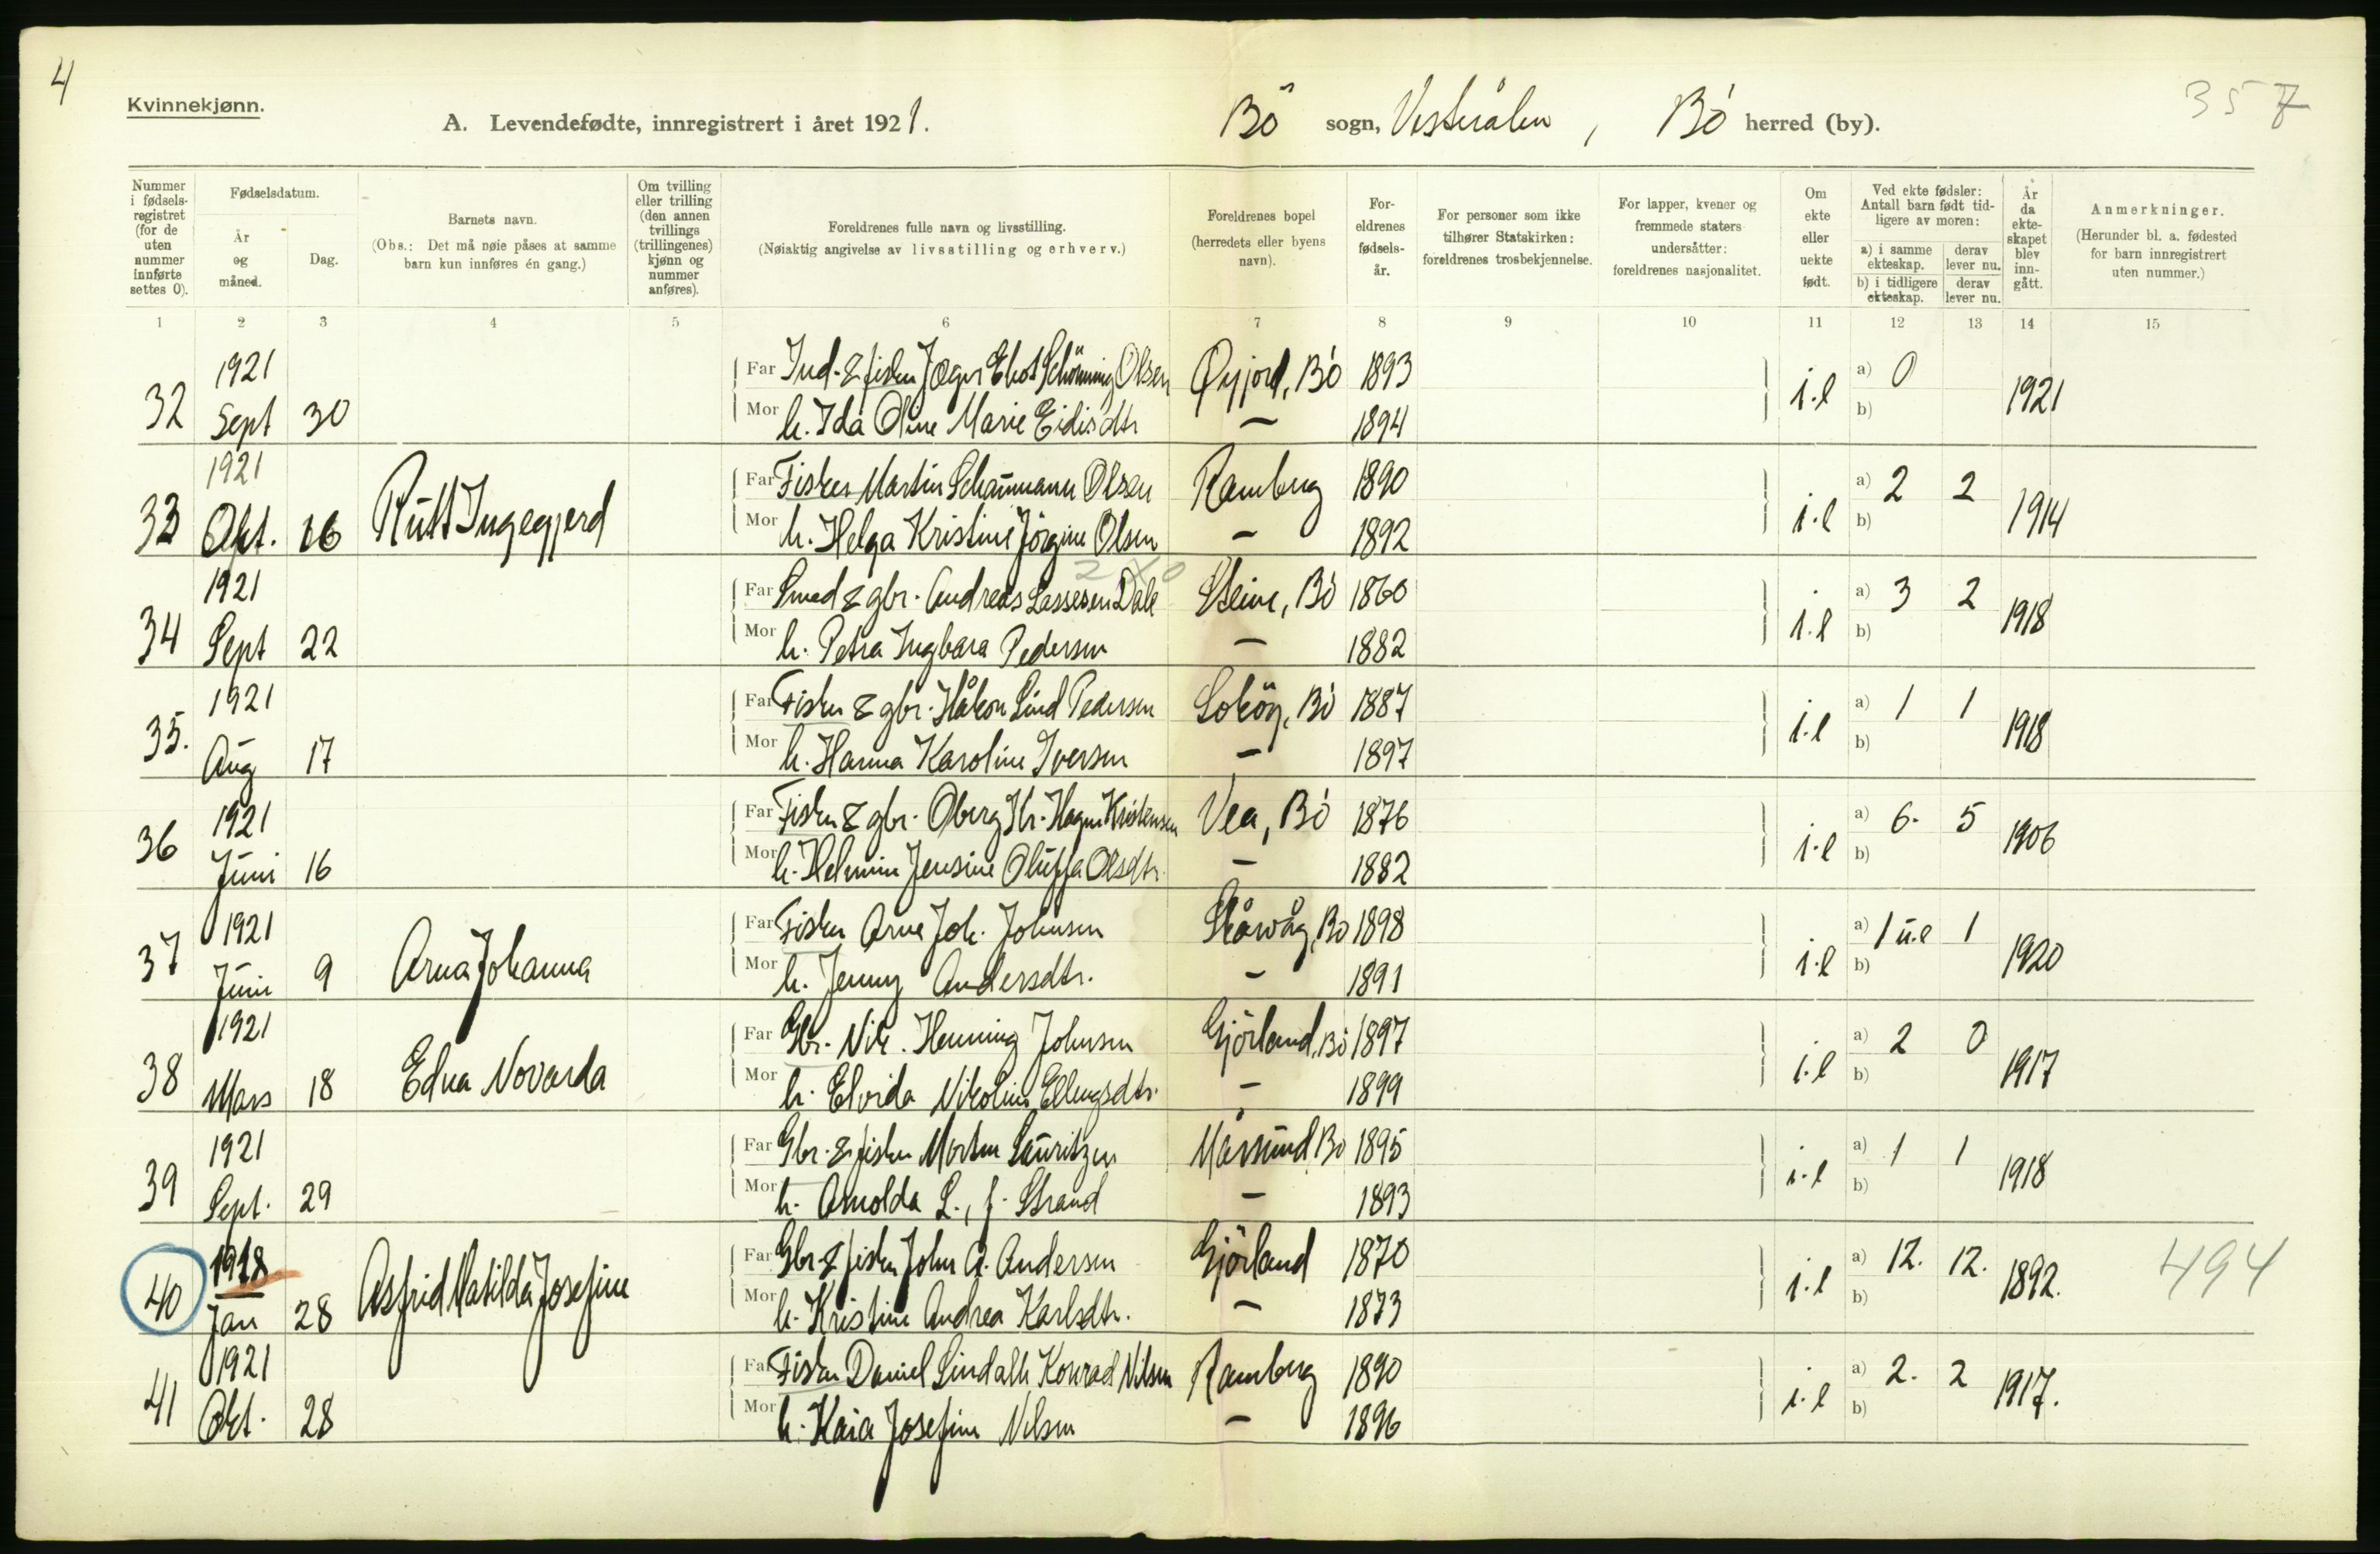 4
Kvinnekjønn.
A. Levendefødte, innregistrert i året 1921.
Bö sogn, Vesterålen, Bö herred (by).
357
Nummer i fødselsregistret (for de uten nummer innførte settes 0).
Fødselsdatum.
År og måned.
Dag.
Barnets navn.
(Obs.: Det må nøie påses at samme barn kun innføres én gang.)
Om tvilling eller trilling (den annen tvillings (trillingenes) kjønn og nummer anføres).
Foreldrenes fulle navn og livsstilling.
(Nøiaktig angivelse av livsstilling og erhverv.)
Foreldrenes bopel (herredets eller byens navn).
For-eldrenes fødsels-år.
For personer som ikke tilhører Statskirken: foreldrenes trosbekjennelse.
For lapper, kvener og fremmede staters undersåtter: foreldrenes nasjonalitet.
Om ekte eller uekte født.
Ved ekte fødsler: Antall barn født tidligere av moren:
a) i samme ekteskap. derav lever nu.
b) i tidligere ekteskap. derav lever nu.
År da ekte-skapet blev inn-gått.
Anmerkninger.
(Herunder bl. a. fødested for barn innregistrert uten nummer.)
1 2 3 4 5 6 7 8 9 10 11 12 13 14 15
32 1921 Sept 30 Far Ind. & fisker Olsen Bö 1893 i.l a) 0 b) 1921
Mor h. Ida Oline Marie Eidisdtr — 1894
33 1921 Okt. 16 Rutt Ingegjerd Far Fisker Martin Schaumann Olsen Ramberg 1890 i.l a) 2 2 b) 1914
Mor h. Helga Kristine Jörgine Olsen — 1892
34 1921 Sept 22 Far Smed & gbr. Andreas Lassesen Dale Steine, Bö 1860 i.l a) 3 2 b) 1918
Mor h. Petra Ingbara Pedersen — 1882
35. 1921 Aug 17 Far Fisker & gbr. Håkon Lind Pedersen Bö 1887 i.l a) 1 1 b) 1918
Mor h. Hanna Karoline Iversen — 1897
36 1921 Juni 16 Far Fisker & gbr. Oberg Kr. Hagen Kristensen Vea, Bö 1876 i.l a) 6. 5 b) 1906
Mor h. Helmine Jensine Oluffa Olsdtr. — 1882
37 1921 Juni 9 Arna Johanna Far Fisker Arne Joh. Johnsen Skårvåg, Bö 1898 i.l a) 1 u.e 1 b) 1920
Mor h. Jenny Andersdtr. — 1891
38 1921 Mars 18 Edna Novarda Far Gbr. Nik. Henning Johnsen Gjörland, Bö 1897 i.l a) 2 0 b) 1917
Mor h. Elvida Nikoline Ellingsdtr. — 1899
39 1921 Sept. 29 Far Gbr. & fisker Morten Lauritzen Mårsund Bö 1895 i.l a) 1 1 b) 1918
Mor h. Arnolda L., f. Strand — 1893
40 1918 Jan 28 Asfrid Matilda Josefine Far Gbr & fisker John A. Andersen Gjörland 1870 i.l a) 12. 12. b) 1892. 494
Mor h. Kristine Andrea Karlsdtr. — 1873
41 1921 Okt. 28 Far Fisker Daniel Lindahl Konrad Nilsen Ramberg 1890 i.l a) 2. 2 b) 1917.
Mor h. Kaia Josefine Nilsen — 1896